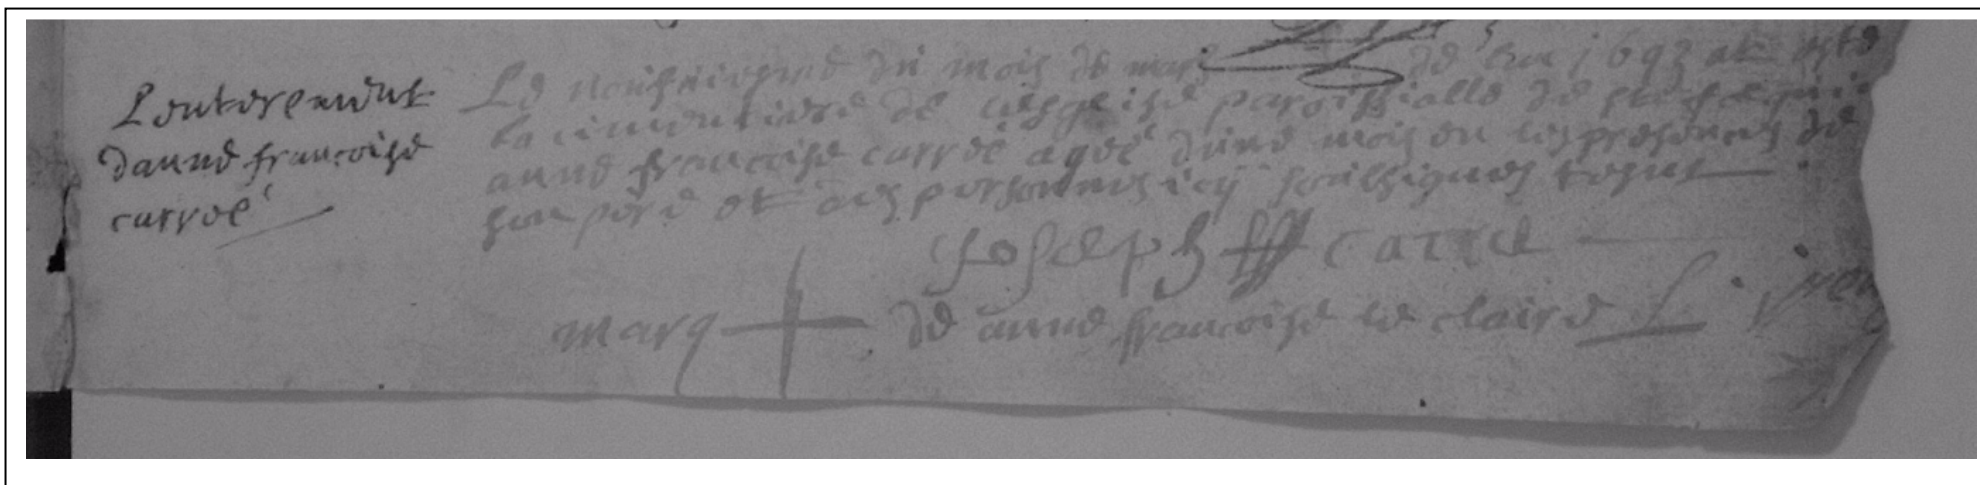 Lenterement
danne francoise
carrée
Le neufviesme du mois de mars de lan 1693 at esté
la cimentiere de paroissialle de
anne francoise carrée agée dune mois en les presences de
son pere et des personnes icy soubsignes
Joseph carré
marq + de anne francoise le claire